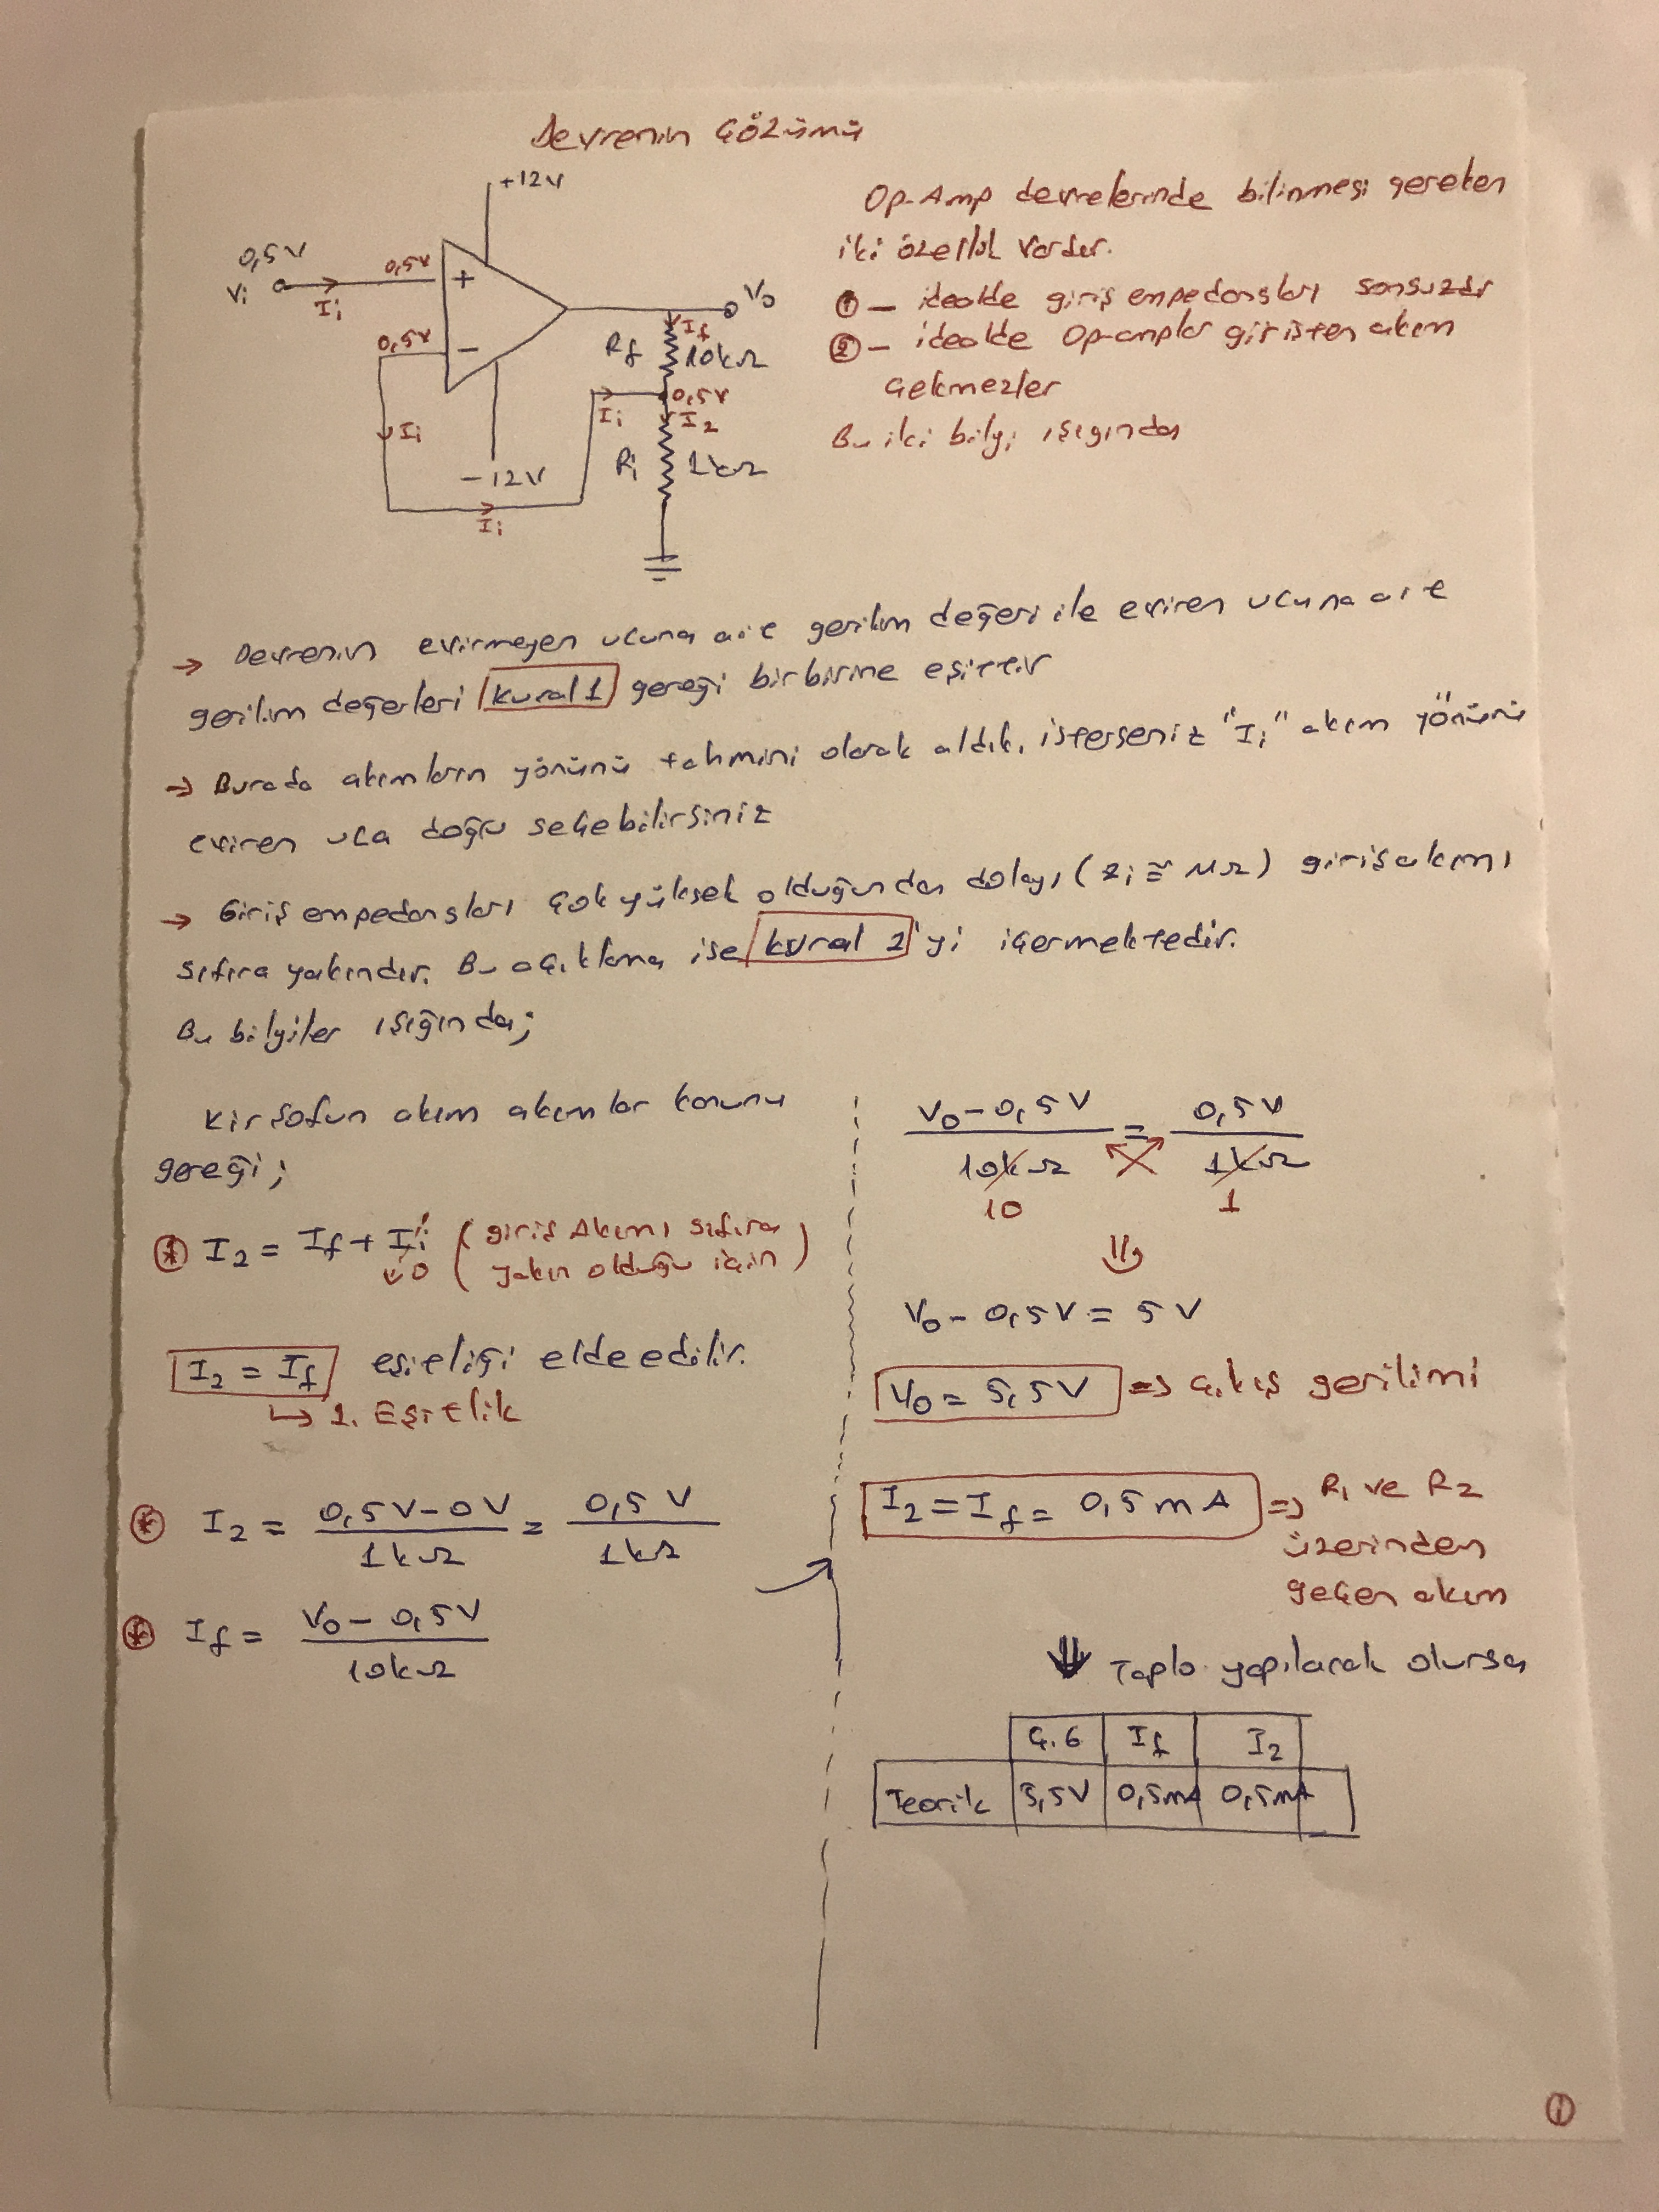 Devrenin Çözümü
+12V
0,5V
Vi
Ii
0,5V
+
0,5V
-
Vo
If
Rf
10kΩ
0,5V
Ii
I2
Ii
Ri
1kΩ
-12V
Ii
Op-Amp devrelerinde bilinmesi gereken
iki özellik vardır.
① - idealde giriş empedansları sonsuzdur
② - idealde Op-amplar girişten akım
çekmezler
Bu iki bilgi ışığında
→ Devrenin evirmeyen ucuna ait gerilim değeri ile eviren ucuna ait
gerilim değerleri kural 1 gereği birbirine eşittir
→ Burada akımların yönünü tahmini olarak aldık, isterseniz "Ii" akım yönünü
eviren uca doğru seçebilirsiniz
→ Giriş empedansları çok yüksek olduğundan dolayı (Zi ≅ MΩ) giriş akımı
sıfıra yakındır. Bu açıklama ise kural 2'yi içermektedir.
Bu bilgiler ışığında;
Kirşofun akım akımlar kanunu
gereği;
* I2 = If + Ii (giriş Akımı sıfıra
→0 yakın olduğu için)
I2 = If eşitliği elde edilir.
↳ 1. Eşitlik
* I2 = 0,5V-0V / 1kΩ = 0,5V / 1kΩ
* If = Vo - 0,5V / 10kΩ
Vo - 0,5V / 10kΩ = 0,5V / 1kΩ
10 1
⇓
Vo - 0,5V = 5V
Vo = 5,5V => Çıkış gerilimi
I2 = If = 0,5mA => R1 ve R2
üzerinden
geçen akım
⇓ Tablo yapılacak olursa
Ç.G If I2
Teorik 5,5V 0,5mA 0,5mA
①